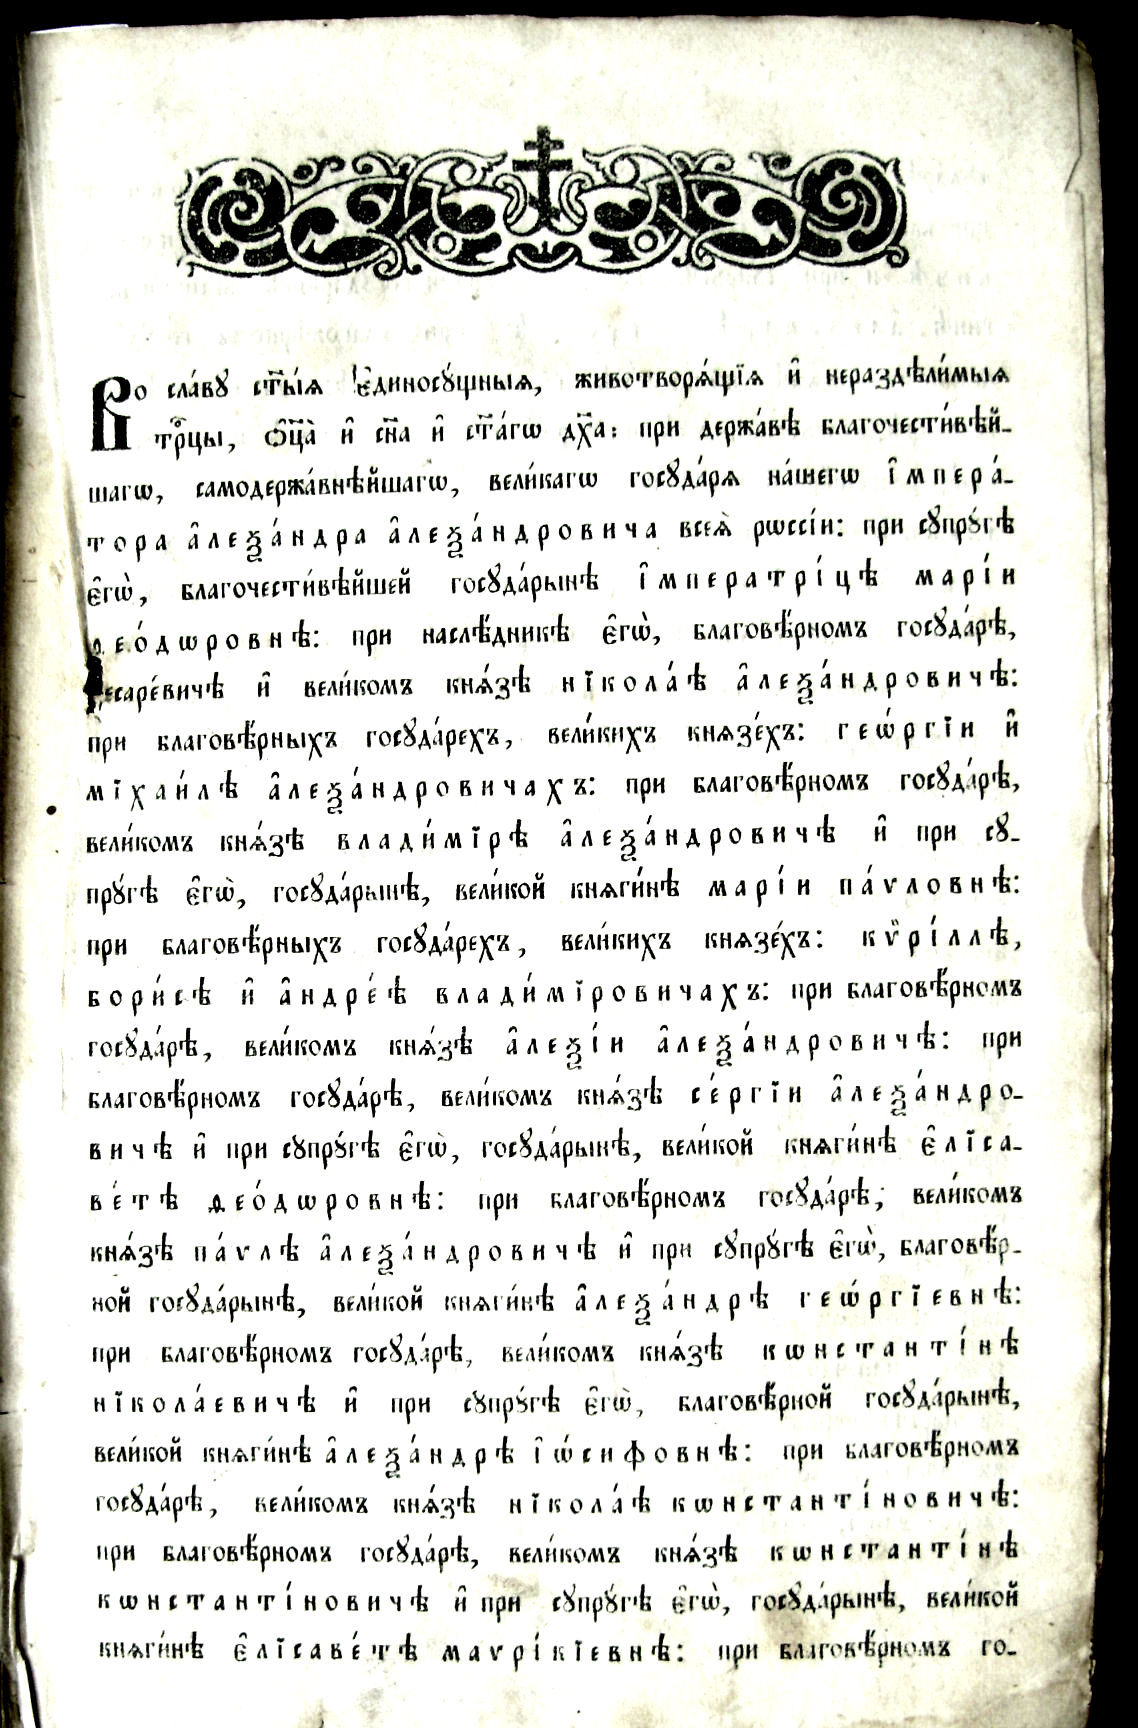 Во сла́вꙋ ст҃ы́ѧ Є҆диносꙋ́щныѧ, животворѧ́щїѧ и҆ нераздѣли́мыѧ
трⷪ҇цы, ѻ҆ц҃а̀ и҆ сн҃а и҆ ст҃а́гѡ дх҃а: при держа́вѣ благочести́вѣй-
шагѡ, самодержа́внѣйшагѡ, вели́кагѡ госꙋда́рѧ на́шегѡ і҆мпера́-
тора а҆леѯа́ндра а҆леѯа́ндровича всеѧ̀ рѡссі́и: при сꙋпрꙋ́гѣ
є҆гѡ̀, благочести́вѣйшей госꙋда́рынѣ і҆мператрі́цѣ марі́и
ѳео́дѡровнѣ: при наслѣ́дникѣ є҆гѡ̀, благовѣ́рномъ госꙋда́рѣ,
цесаре́вичѣ и҆ вели́комъ кнѧ́зѣ нїкола́ѣ а҆леѯа́ндровичѣ:
при благовѣ́рныхъ госꙋда́рехъ, вели́кихъ кнѧзе́хъ: геѡ́ргїи и҆
мїхаи́лѣ а҆леѯа́ндровичахъ: при благовѣ́рномъ госꙋда́рѣ,
вели́комъ кнѧ́зѣ влади́мїрѣ а҆леѯа́ндровичѣ и҆ при сꙋ-
прꙋ́гѣ є҆гѡ̀, госꙋда́рынѣ, вели́кой кнѧги́нѣ марі́и па́ѵловнѣ:
при благовѣ́рныхъ госꙋда́рехъ, вели́кихъ кнѧзе́хъ: кѷрі́ллѣ,
бори́сѣ и҆ а҆ндре́ѣ влади́мїровичахъ: при благовѣ́рномъ
госꙋда́рѣ, вели́комъ кнѧ́зѣ а҆леѯі́и а҆леѯа́ндровичѣ: при
благовѣ́рномъ госꙋда́рѣ, вели́комъ кнѧ́зѣ се́ргїи а҆леѯа́ндро-
вичѣ и҆ при сꙋпрꙋ́гѣ є҆гѡ̀, госꙋда́рынѣ, вели́кой кнѧги́нѣ є҆лїса-
ве́тѣ ѳео́дѡровнѣ: при благовѣ́рномъ госꙋда́рѣ, вели́комъ
кнѧ́зѣ па́ѵлѣ а҆леѯа́ндровичѣ и҆ при сꙋпрꙋ́гѣ є҆гѡ̀, благовѣ́р-
ной госꙋда́рынѣ, вели́кой кнѧги́нѣ а҆леѯа́ндрѣ геѡ́ргїевнѣ:
при благовѣ́рномъ госꙋда́рѣ, вели́комъ кнѧ́зѣ кѡнстанті́нѣ
нїкола́евичѣ и҆ при сꙋпрꙋ́гѣ є҆гѡ̀, благовѣ́рной госꙋда́рынѣ,
вели́кой кнѧги́нѣ а҆леѯа́ндрѣ і҆ѡ́сифовнѣ: при благовѣ́рномъ
госꙋда́рѣ, вели́комъ кнѧ́зѣ нїкола́ѣ кѡнстанті́новичѣ:
при благовѣ́рномъ госꙋда́рѣ, вели́комъ кнѧ́зѣ кѡнстанті́нѣ
кѡнстанті́новичѣ и҆ при сꙋпрꙋ́гѣ є҆гѡ̀, госꙋда́рынѣ, вели́кой
кнѧги́нѣ є҆лїсаве́тѣ маѵрі́кїевнѣ: при благовѣ́рномъ го-